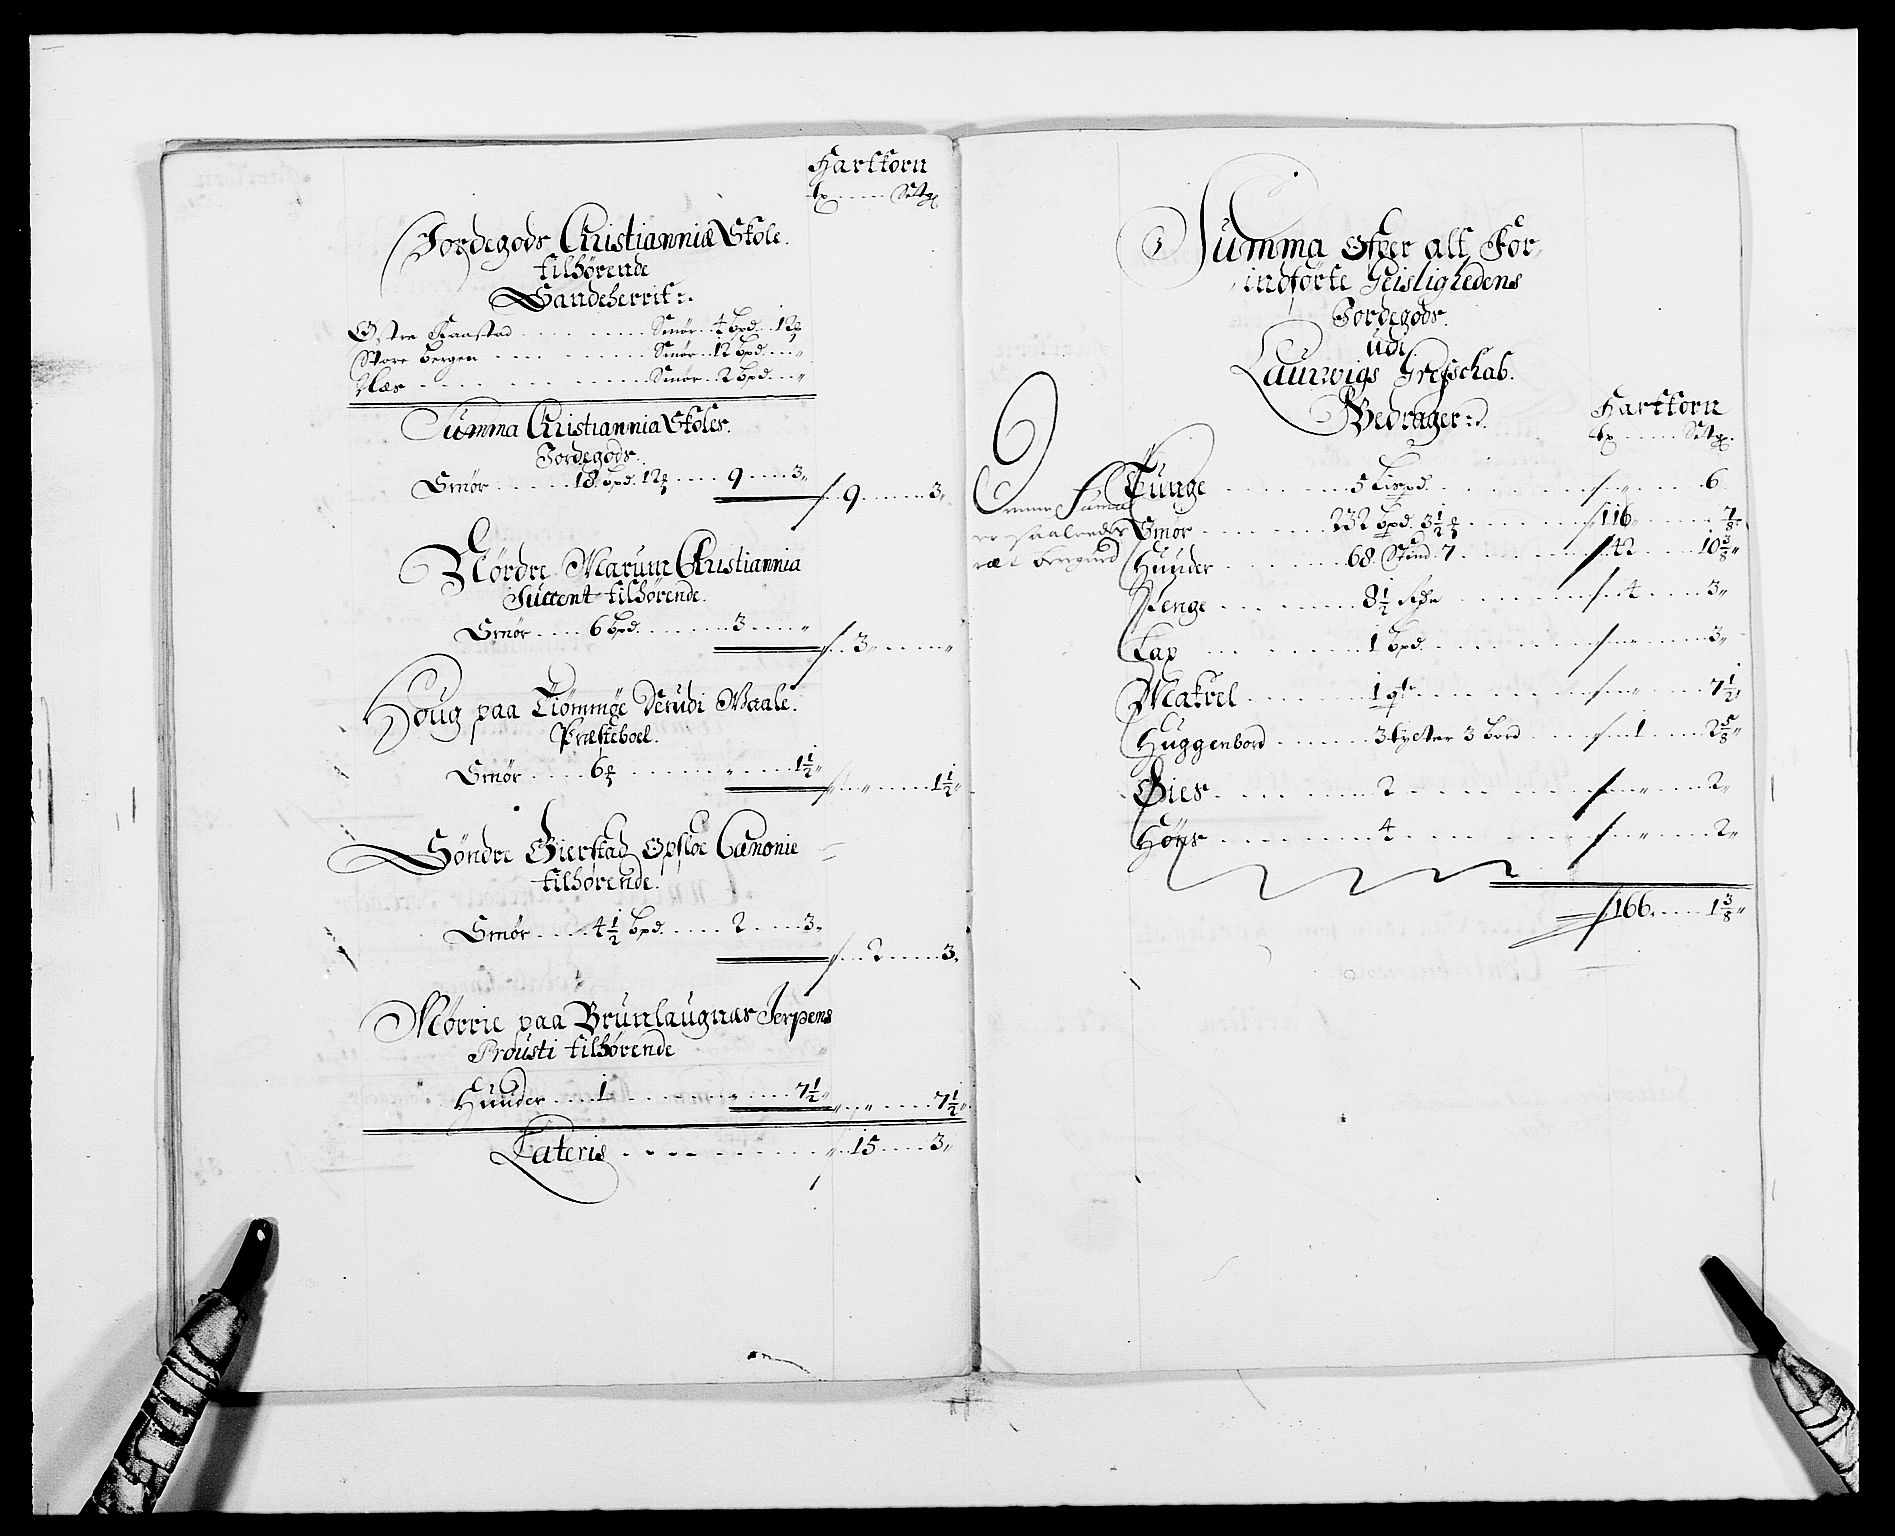 Hartkorn
Jordegods Christianniæ Skole
tilhørende
Sandeherrit
Østre Haastad Smør 4 bpd. 12
Store Bergen Smør 12 bpd.
Næs Smør 2 bpd.
Summa Christiannia Skoles
Jordegods
Smør 18 bpd. 12 9 3
9 3
Nördre Marum Christiannia
tilhørende.
Smør 6 bpd. 3
3
Houg paa Tiömmöe Vaale
Præsteboel.
Smør 6 1½
1½
Söndre Gierstad Opsloe Canonie
tilhørende.
Smør 4½ bpd. 2 3
2 3
Mørrie paa Brunlaugnæs Jerpens
Prousti tilhørende
Huuder 1 7½
7½
Lateris 15 3
Summa Ofver alt For
indförte Geistlighedens
Jordegods
udi
Laurwigs Grefschab.
Bedrager
Hartkorn
Denne Suma
er saaledes
ræt
Tunge 5 Lispd. 6
Smør 232 bpd. 3½ 116 7/8
Huuder 68 7 42 10 3/8
Penge 8½ 4 3
Lax 1 bpd. 3
Makrel 1 7½
Huggenbord 3 tylter 3 bord 1 2 5/8
Gies 2 2
Höns 4 2
166 1 3/8